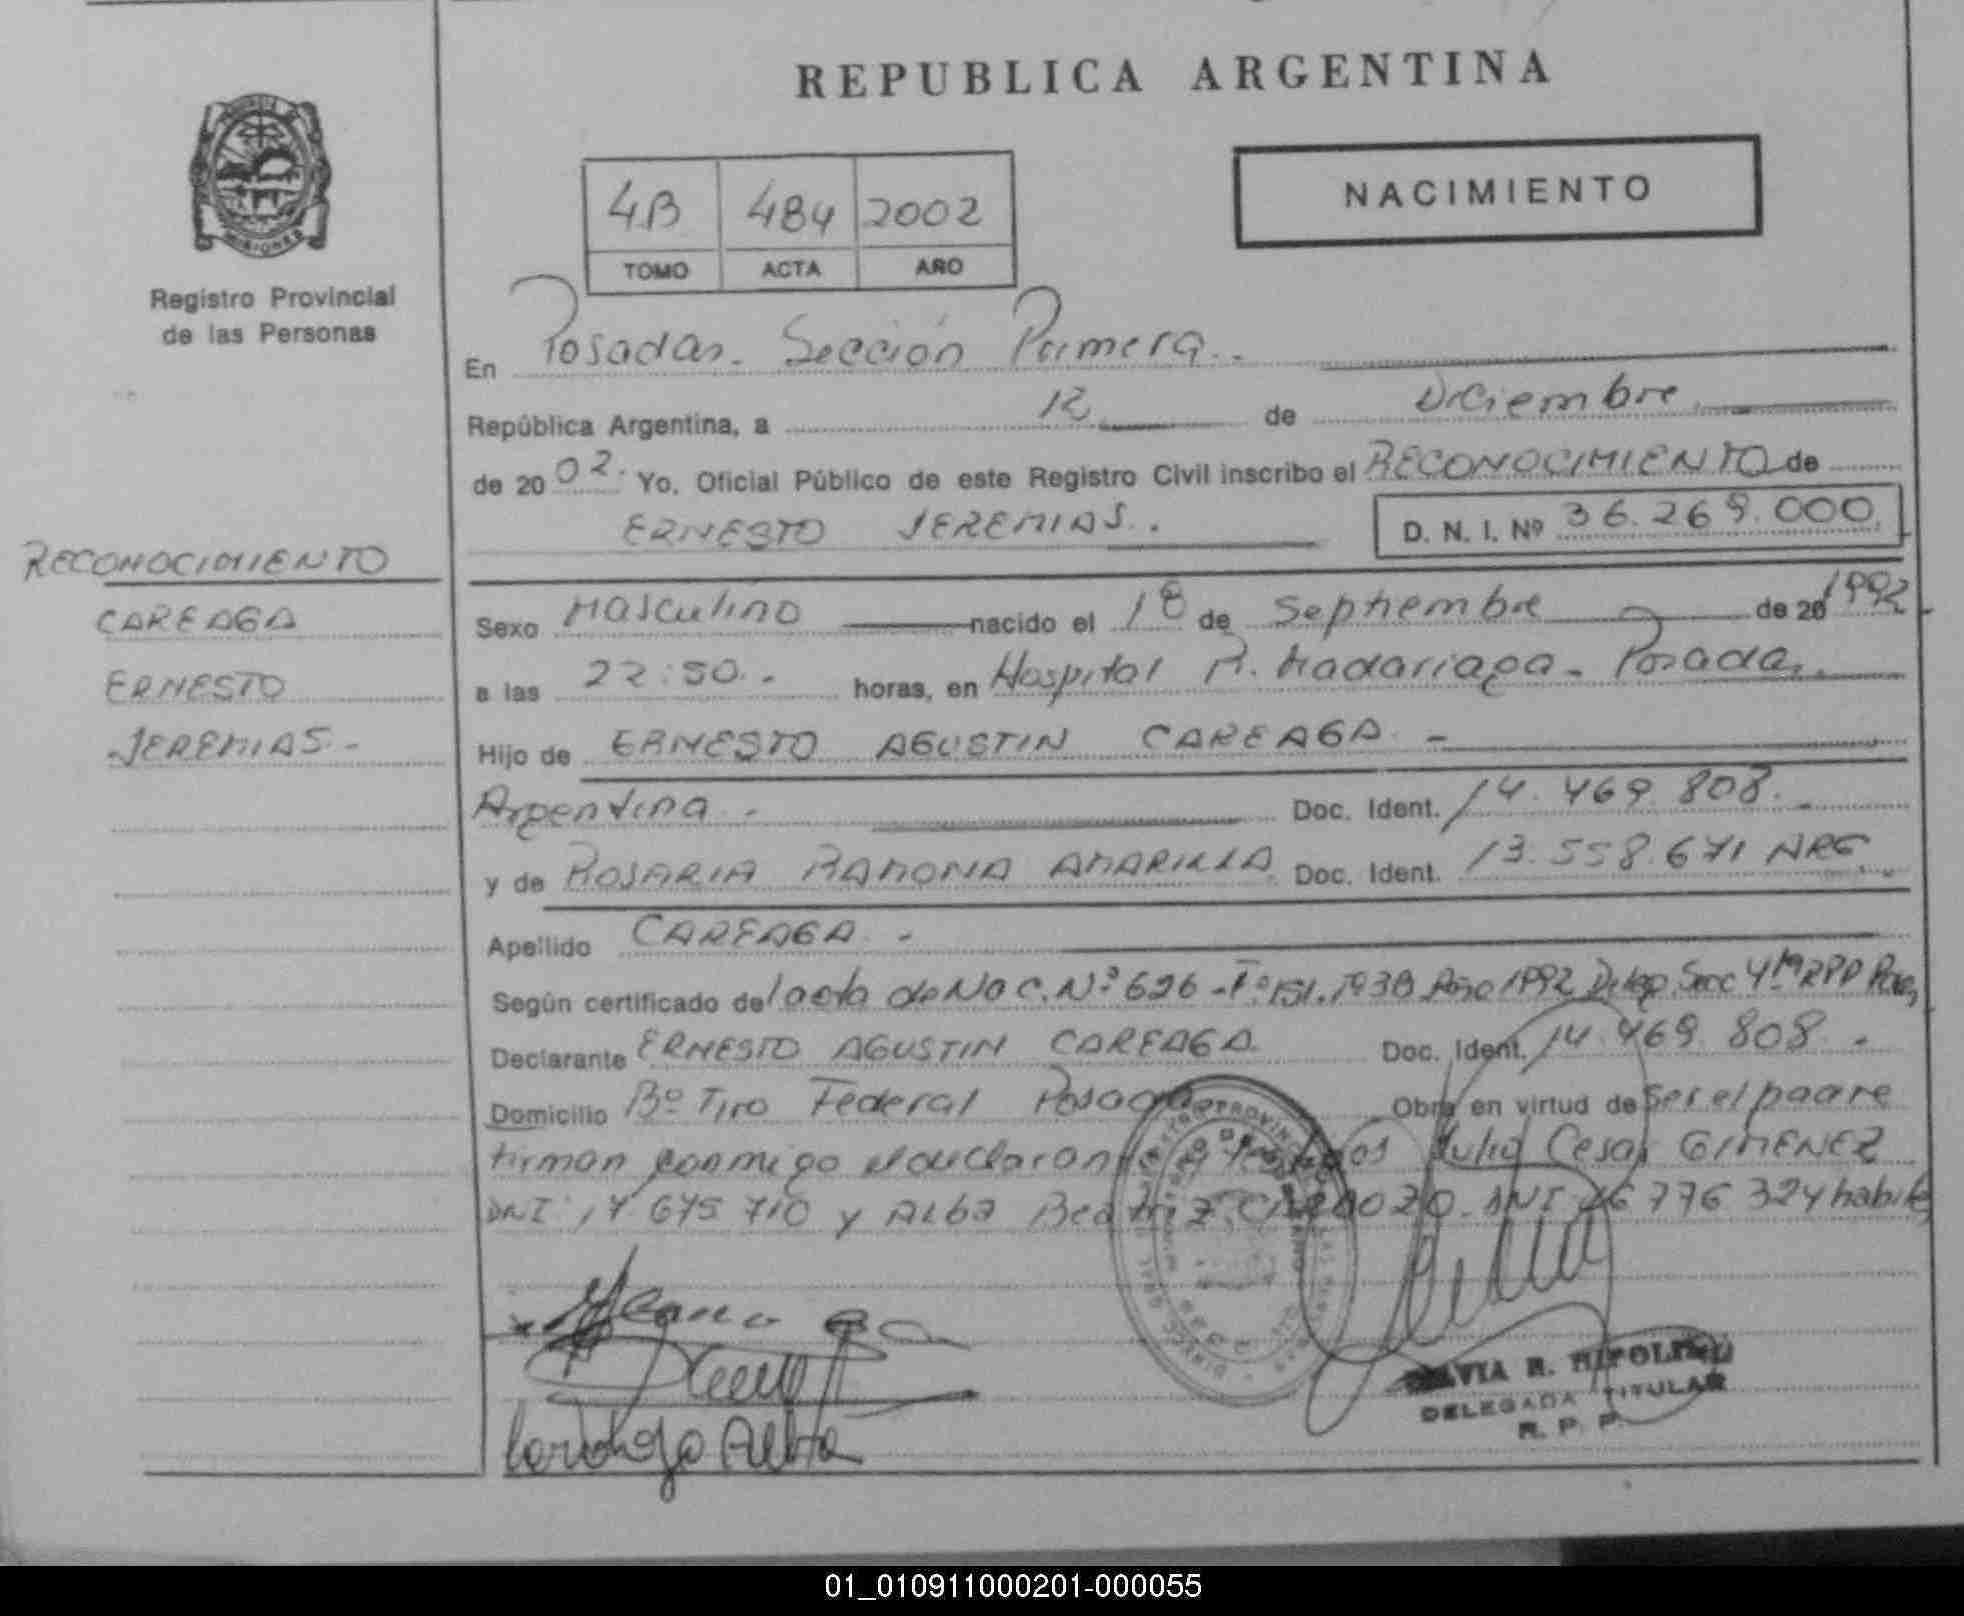 REPUBLICA ARGENTINA
NACIMIENTO
4B 484 2002
TOMO ACTA AÑO
MISIONES
Registro Provincial
de las Personas
En Posadas. Sección Primera.
República Argentina, a 12 de Diciembre
de 2002. Yo, Oficial Público de este Registro Civil inscribo el RECONOCIMIENTO de
ERNESTO JEREMIAS. D. N. I. Nº 36.269.000
RECONOCIMIENTO
CAREAGA
ERNESTO
JEREMIAS.-
Sexo Masculino nacido el 18 de Septiembre de 20 1992
a las 22:50. horas, en Hospital R. Madariaga - Posadas.
Hijo de ERNESTO AGUSTIN CAREAGA -
Argentina - Doc. Ident. 14.469.808.-
y de ROSARIA RAMONA AMARILLA Doc. Ident. 13.558.671 ARG.
Apellido CAREAGA -
Según certificado de l acta de Nac. Nº 626 - Fº 151. Tº 3B Año 1992 Deleg. Secc 4ta RPP
Declarante ERNESTO AGUSTIN CAREAGA Doc. Ident. 14.469.808.-
Domicilio Bº Tiro Federal Posadas Obra en virtud de Ser el padre
firman conmigo el declarante y Julio Cesar GIMENEZ
DNI 17.675.710 y Alba Beatriz CARDOZO DNI 16.776.324 habiles
Cardozo Alba
R. HIPOLITO
DELEGADA TITULAR
R. P. P.
01_010911000201-000055